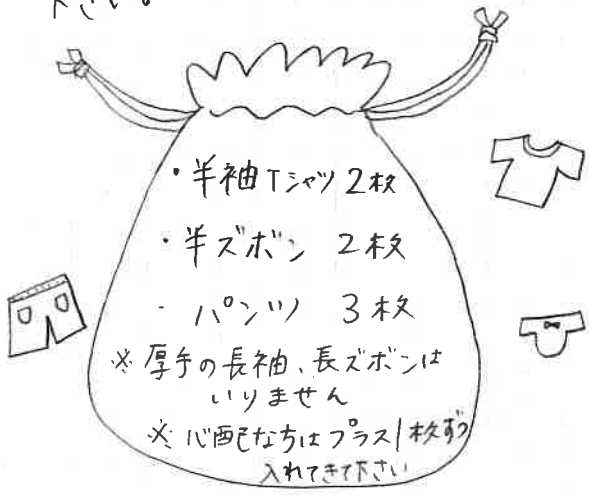 下さい。
・半袖Tシャツ 2枚
・半ズボン 2枚
・パンツ 3枚
※厚手の長袖、長ズボンは
いりません
※心配な方はプラス1枚ずつ
入れてきて下さい